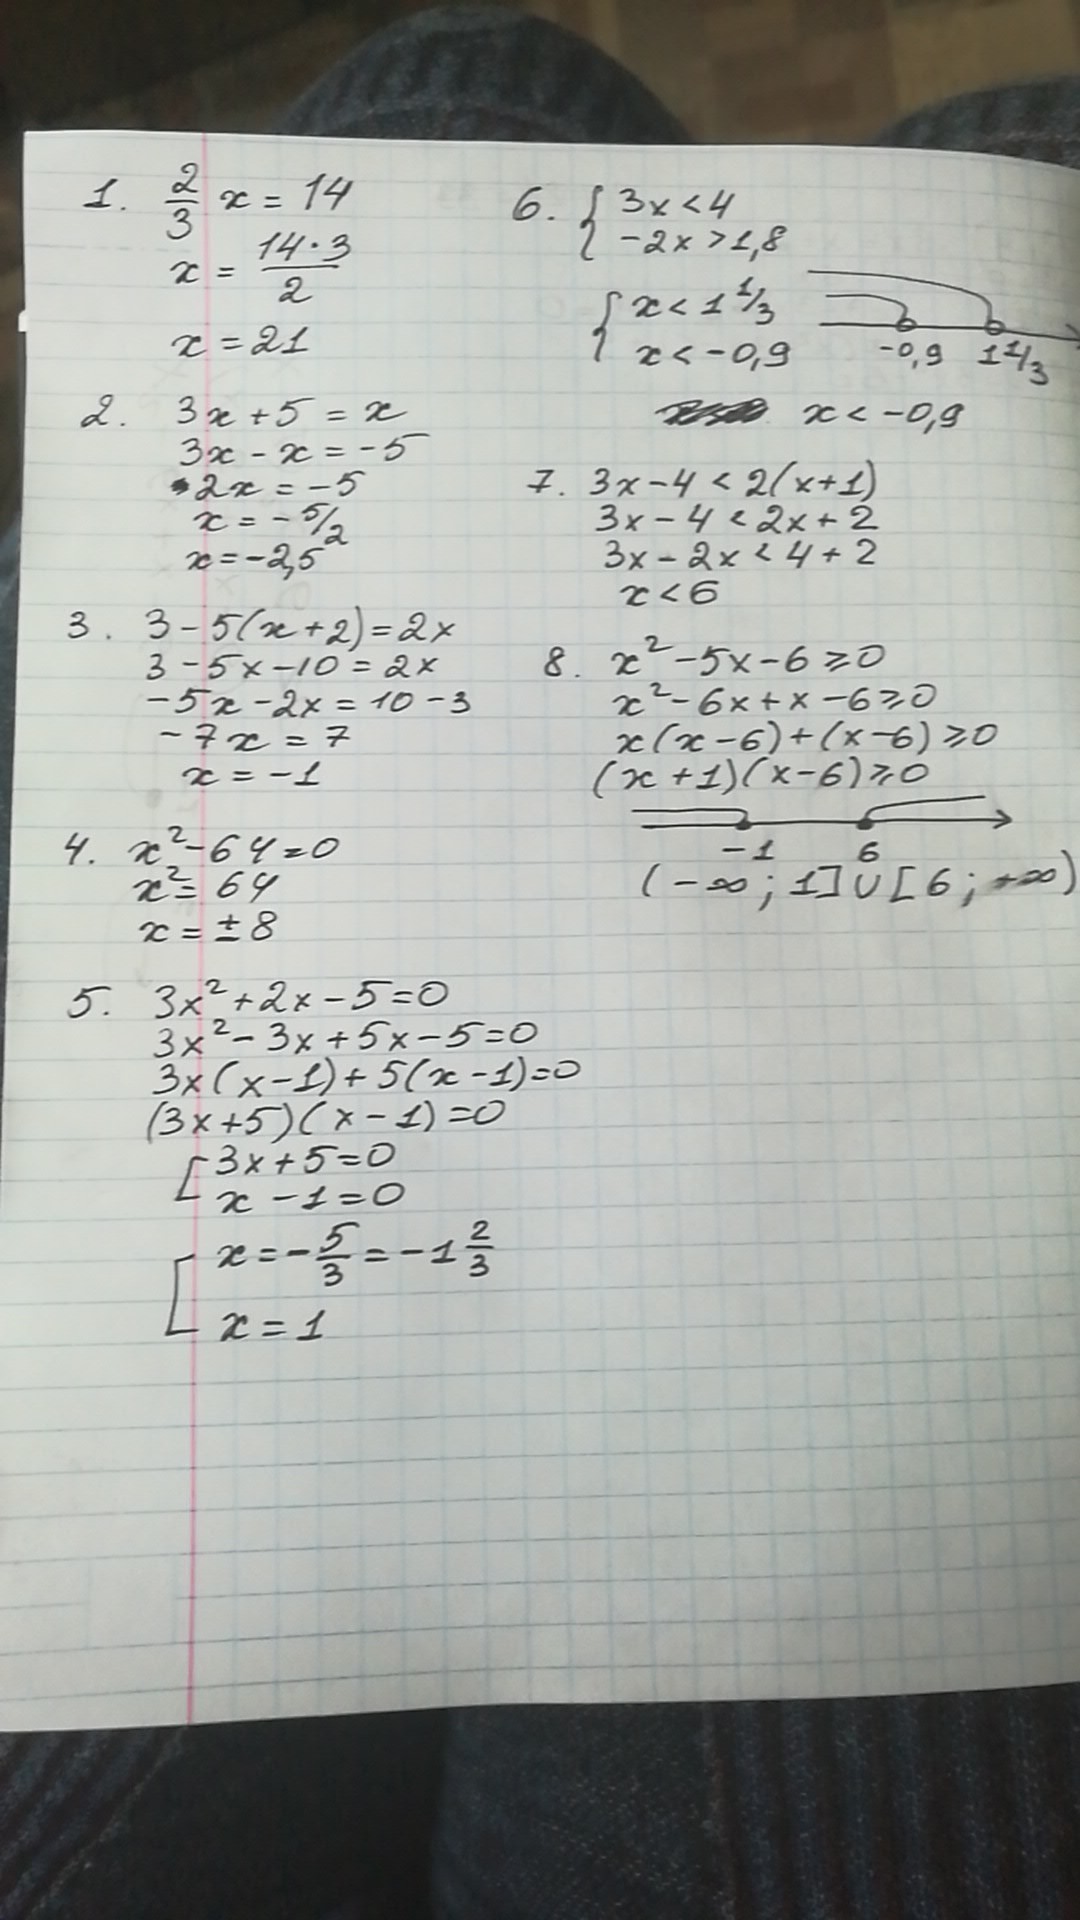 1. 2/3 x = 14
x = 14·3/2
x = 21
2. 3x + 5 = x
3x - x = -5
2x = -5
x = -5/2
x = -2,5
3. 3 - 5(x+2) = 2x
3 - 5x - 10 = 2x
-5x - 2x = 10 - 3
-7x = 7
x = -1
4. x² - 64 = 0
x² = 64
x = ± 8
5. 3x² + 2x - 5 = 0
3x² - 3x + 5x - 5 = 0
3x(x-1) + 5(x-1) = 0
(3x+5)(x-1) = 0
[ 3x + 5 = 0
x - 1 = 0
[ x = -5/3 = -1 2/3
x = 1
6. { 3x < 4
-2x > 1,8
{ x < 1 1/3
x < -0,9
-0,9 1 1/3
x < -0,9
7. 3x - 4 < 2(x+1)
3x - 4 < 2x + 2
3x - 2x < 4 + 2
x < 6
8. x² - 5x - 6 ⩾ 0
x² - 6x + x - 6 ⩾ 0
x(x-6) + (x-6) ⩾ 0
(x+1)(x-6) ⩾ 0
-1 6
(-∞; 1] ∪ [6; +∞)